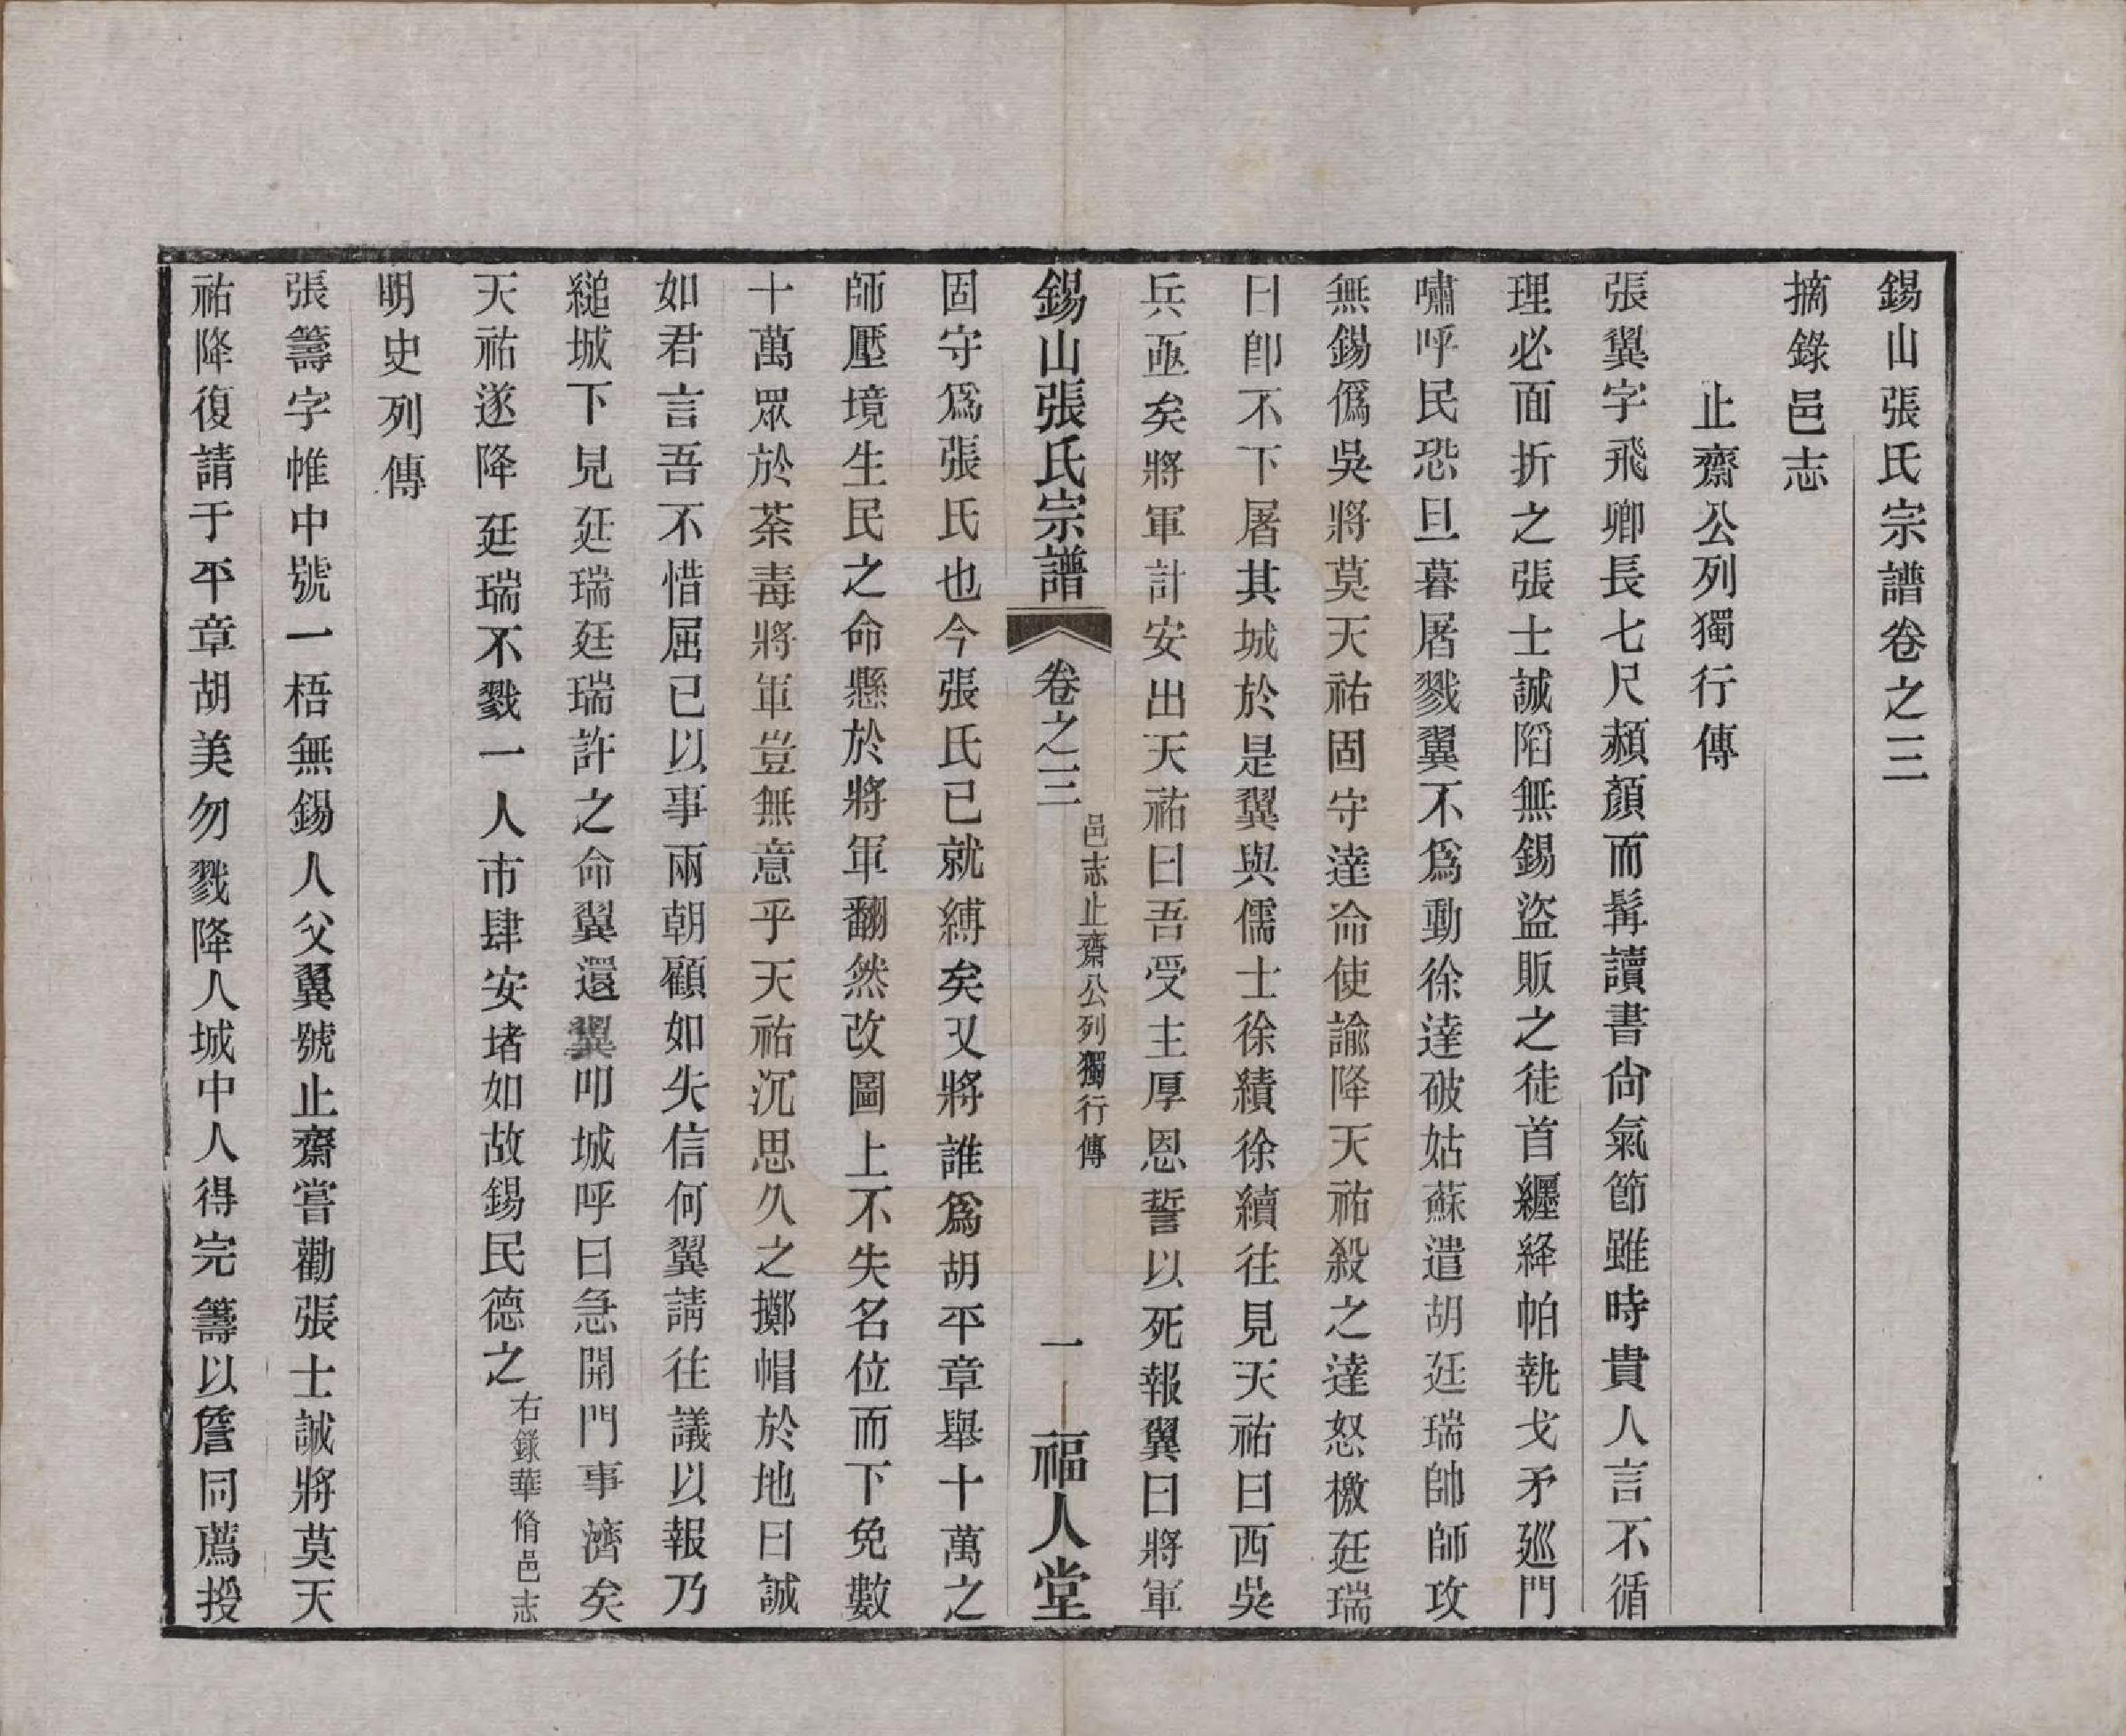 錫山張氏宗譜卷之三
摘錄邑志
止齋公列獨行傳
張翼字飛卿長七尺赬顏而髯讀書尙氣節雖時貴人言不循
理必面折之張士誠陷無錫盜販之徒首纏絳帕執戈矛廵門
嘯呼民恐旦暮屠戮翼不爲動徐達破姑蘇遣胡廷瑞帥師攻
無錫僞吳將莫天祐固守達命使諭降天祐殺之達怒檄廷瑞
曰卽不下屠其城於是翼與儒士徐績徐續往見天祐曰西吳
兵亟矣將軍計安出天祐曰吾受主厚恩誓以死報翼曰將軍
錫山張氏宗譜 卷之三 邑志止齋公列獨行傳 一 一福人堂
固守爲張氏也今張氏已就縛矣又將誰爲胡平章舉十萬之
師壓境生民之命懸於將軍翻然改圖上不失名位而下免數
十萬眾於荼毒將軍豈無意乎天祐沉思久之擲帽於地曰誠
如君言吾不惜屈已以事兩朝顧如失信何翼請往議以報乃
縋城下見廷瑞廷瑞許之命翼還翼叩城呼曰急開門事濟矣
天祐遂降廷瑞不戮一人市肆安堵如故錫民德之右錄華脩邑志
明史列傳
張籌字惟中號一梧無錫人父翼號止齋嘗勸張士誠將莫天
祐降復請于平章胡美勿戮降人城中人得完籌以詹同薦授